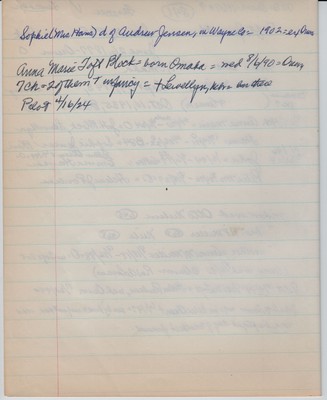 Sophie (Mrs Hans) d of Andrew Jensen, in Wayne Co = 1902 = ex Dan
Anna Marie Toft Block = born Omaha = wed 9/6/90 = Dan,
7 ch = 2 of them † infancy = + Lewellyn, Nebr =
Pilot 4/16/24